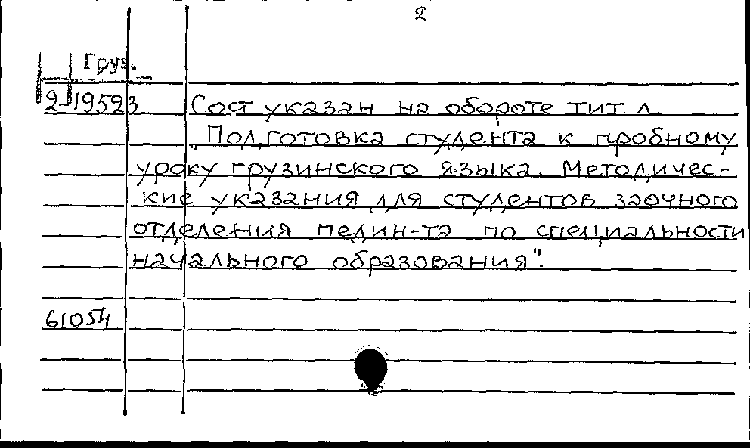 2
Груз.
2-19523 Сост указан на обороте тит л
„Подготовка студента к пробному
уроку грузинского языка. Методичес-
кие указания для студентов заочного
отделения педин-та по специальности
начального образования".
61054